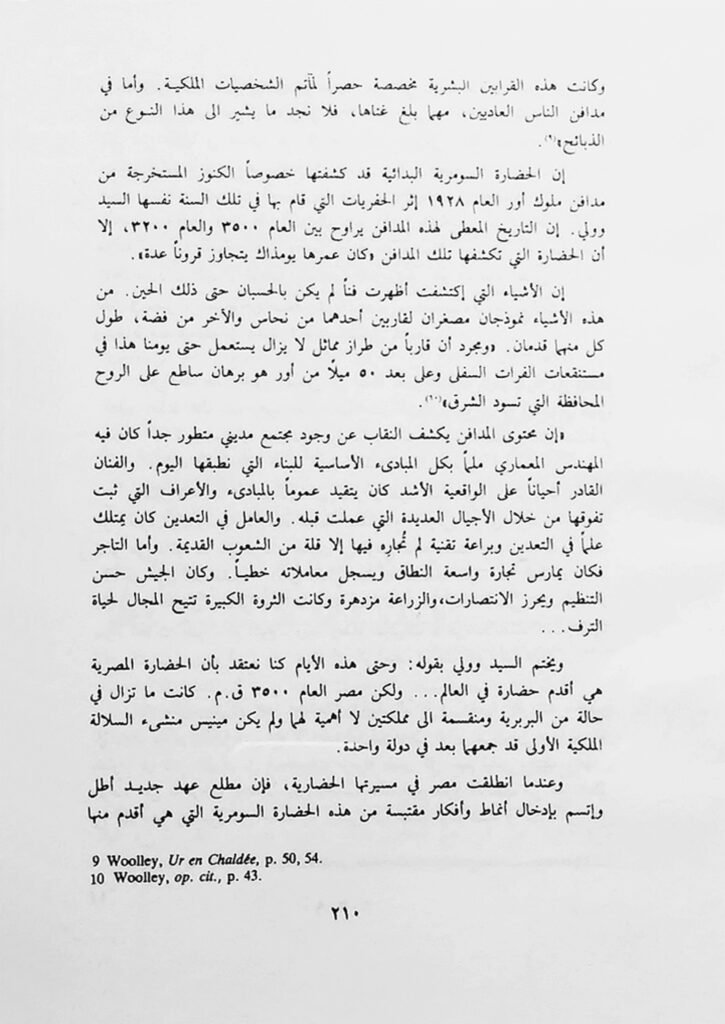 وكانت هذه القرابين البشرية مخصصة حصراً لمآتم الشخصيات الملكية. وأما في
مدافن الناس العاديين، مهما بلغ غناها، فلا نجد ما يشير الى هذا النوع من
الذبائح»(٩).
إن الحضارة السومرية البدائية قد كشفتها خصوصاً الكنوز المستخرجة من
مدافن ملوك أور العام ١٩٢٨ إثر الحفريات التي قام بها في تلك السنة نفسها السيد
وولي. إن التاريخ المعطى لهذه المدافن يراوح بين العام ٣٥٠٠ والعام ٣٢٠٠، إلا
أن الحضارة التي تكشفها تلك المدافن «كان عمرها يومذاك يتجاوز قروناً عدة».
إن الأشياء التي إكتشفت أظهرت فناً لم يكن بالحسبان حتى ذلك الحين. من
هذه الأشياء نموذجان مصغران لقاربين أحدهما من نحاس والآخر من فضة، طول
كل منهما قدمان. «ومجرد أن قارباً من طراز مماثل لا يزال يستعمل حتى يومنا هذا في
مستنقعات الفرات السفلى وعلى بعد ٥٠ ميلاً من أور هو برهان ساطع على الروح
المحافظة التي تسود الشرق»(١٠).
«إن محتوى المدافن يكشف النقاب عن وجود مجتمع مديني متطور جداً كان فيه
المهندس المعماري ملماً بكل المبادىء الأساسية للبناء التي نطبقها اليوم. والفنان
القادر أحياناً على الواقعية الأشد كان يتقيد عموماً بالمبادىء والأعراف التي ثبت
تفوقها من خلال الأجيال العديدة التي عملت قبله. والعامل في التعدين كان يمتلك
علماً في التعدين وبراعة تقنية لم تُجارِه فيها إلا قلة من الشعوب القديمة. وأما التاجر
فكان يمارس تجارة واسعة النطاق ويسجل معاملاته خطياً. وكان الجيش حسن
التنظيم ويحرز الانتصارات،والزراعة مزدهرة وكانت الثروة الكبيرة تتيح المجال لحياة
الترف...
ويختم السيد وولي بقوله: وحتى هذه الأيام كنا نعتقد بأن الحضارة المصرية
هي أقدم حضارة في العالم... ولكن مصر العام ٣٥٠٠ ق.م. كانت ما تزال في
حالة من البربرية ومنقسمة الى مملكتين لا أهمية لهما ولم يكن مينيس منشىء السلالة
الملكية الأولى قد جمعهما بعد في دولة واحدة.
وعندما انطلقت مصر في مسيرتها الحضارية، فإن مطلع عهد جديد أطل
وإتسم بإدخال أنماط وأفكار مقتبسة من هذه الحضارة السومرية التي هي أقدم منها
9 Woolley, Ur en Chaldée, p. 50, 54.
10 Woolley, op. cit., p. 43.
٢١٠